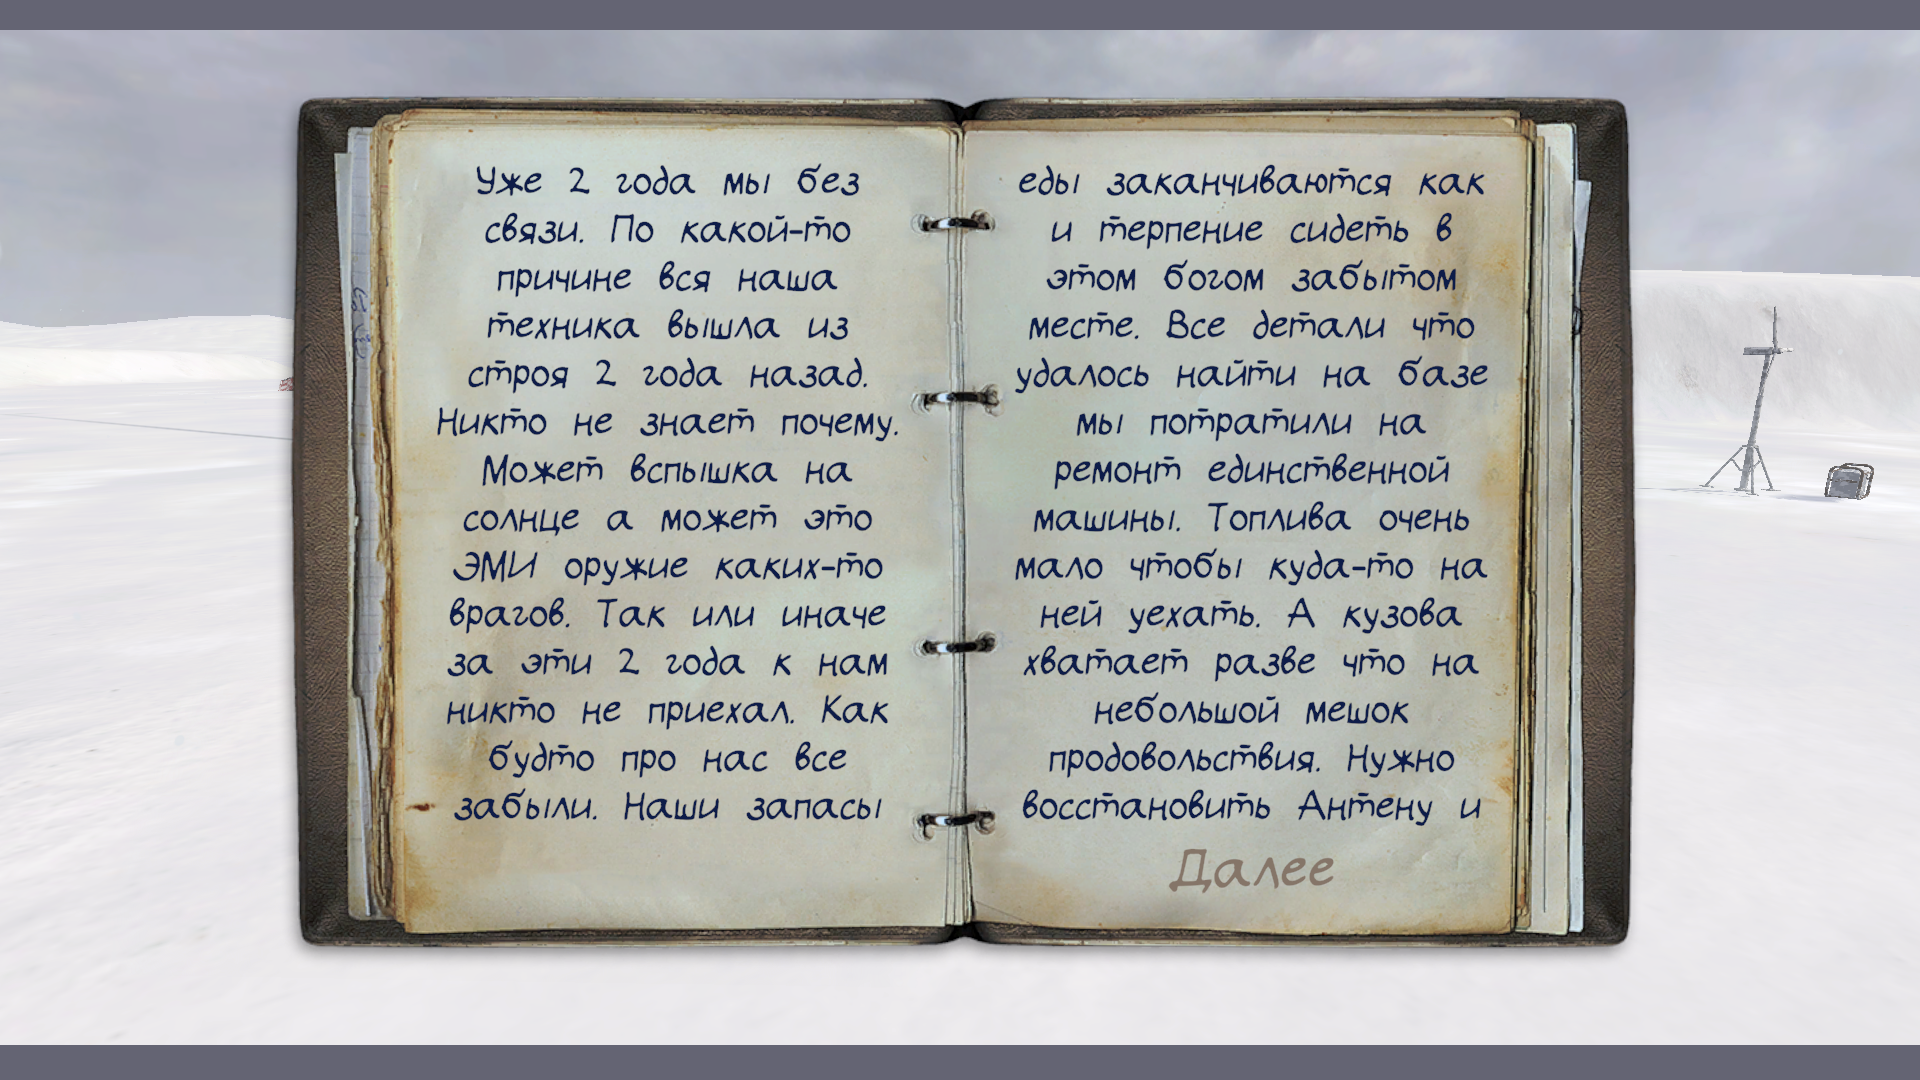 Уже 2 года мы без
связи. По какой-то
причине вся наша
техника вышла из
строя 2 года назад.
Никто не знает почему.
Может вспышка на
солнце а может это
ЭМИ оружие каких-то
врагов. Так или иначе
за эти 2 года к нам
никто не приехал. Как
будто про нас все
забыли. Наши запасы
еды заканчиваются как
и терпение сидеть в
этом богом забытом
месте. Все детали что
удалось найти на базе
мы потратили на
ремонт единственной
машины. Топлива очень
мало чтобы куда-то на
ней уехать. А кузова
хватает разве что на
небольшой мешок
продовольствия. Нужно
восстановить Антену и
Далее